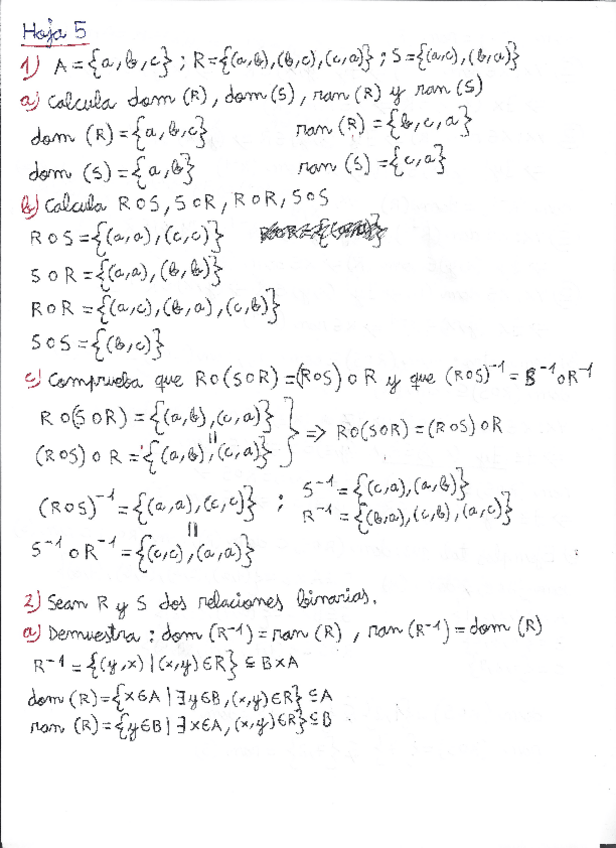 Hoja 5
1) A = {a, b, c} ; R = {(a,b), (b,c), (c,a)} ; S = {(a,c), (b,a)}
a) Calcula dom (R), dom (S), ran (R) y ran (S)
dom (R) = {a, b, c} ran (R) = {b, c, a}
dom (S) = {a, b} ran (S) = {c, a}
b) Calcula R∘S, S∘R, R∘R, S∘S
R∘S = {(a,a), (c,c)}
S∘R = {(a,a), (b,b)}
R∘R = {(a,c), (b,a), (c,b)}
S∘S = {(b,c)}
c) Comprueba que R∘(S∘R) = (R∘S)∘R y que (R∘S)⁻¹ = S⁻¹∘R⁻¹
R∘(S∘R) = {(a,b), (c,a)}
|| } => R∘(S∘R) = (R∘S)∘R
(R∘S)∘R = {(a,b), (c,a)}
(R∘S)⁻¹ = {(a,a), (c,c)} ; S⁻¹ = {(c,a), (a,b)}
|| R⁻¹ = {(b,a), (c,b), (a,c)}
S⁻¹∘R⁻¹ = {(c,c), (a,a)}
2) Sean R y S dos relaciones binarias.
a) Demuestra : dom (R⁻¹) = ran (R) , ran (R⁻¹) = dom (R)
R⁻¹ = {(y,x) | (x,y) ∈ R} ⊆ B×A
dom (R) = {x∈A | ∃y∈B, (x,y)∈R} ⊆ A
ran (R) = {y∈B | ∃x∈A, (x,y)∈R} ⊆ B